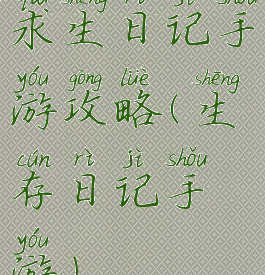 qiú shēng rì jì shǒu
求生日记手
yóu gōng lüè shēng
游攻略(生
cún rì jì shǒu
存日记手
yóu
游)